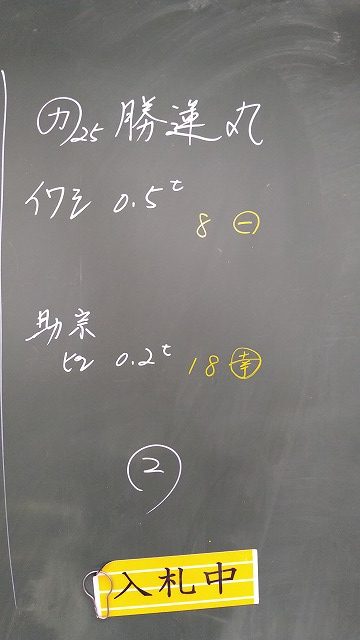 ㋕25 勝運丸
イワシ 0.5t
8 ㊀
助宗
ヒロ 0.2t 18 ㊵
②
入札中